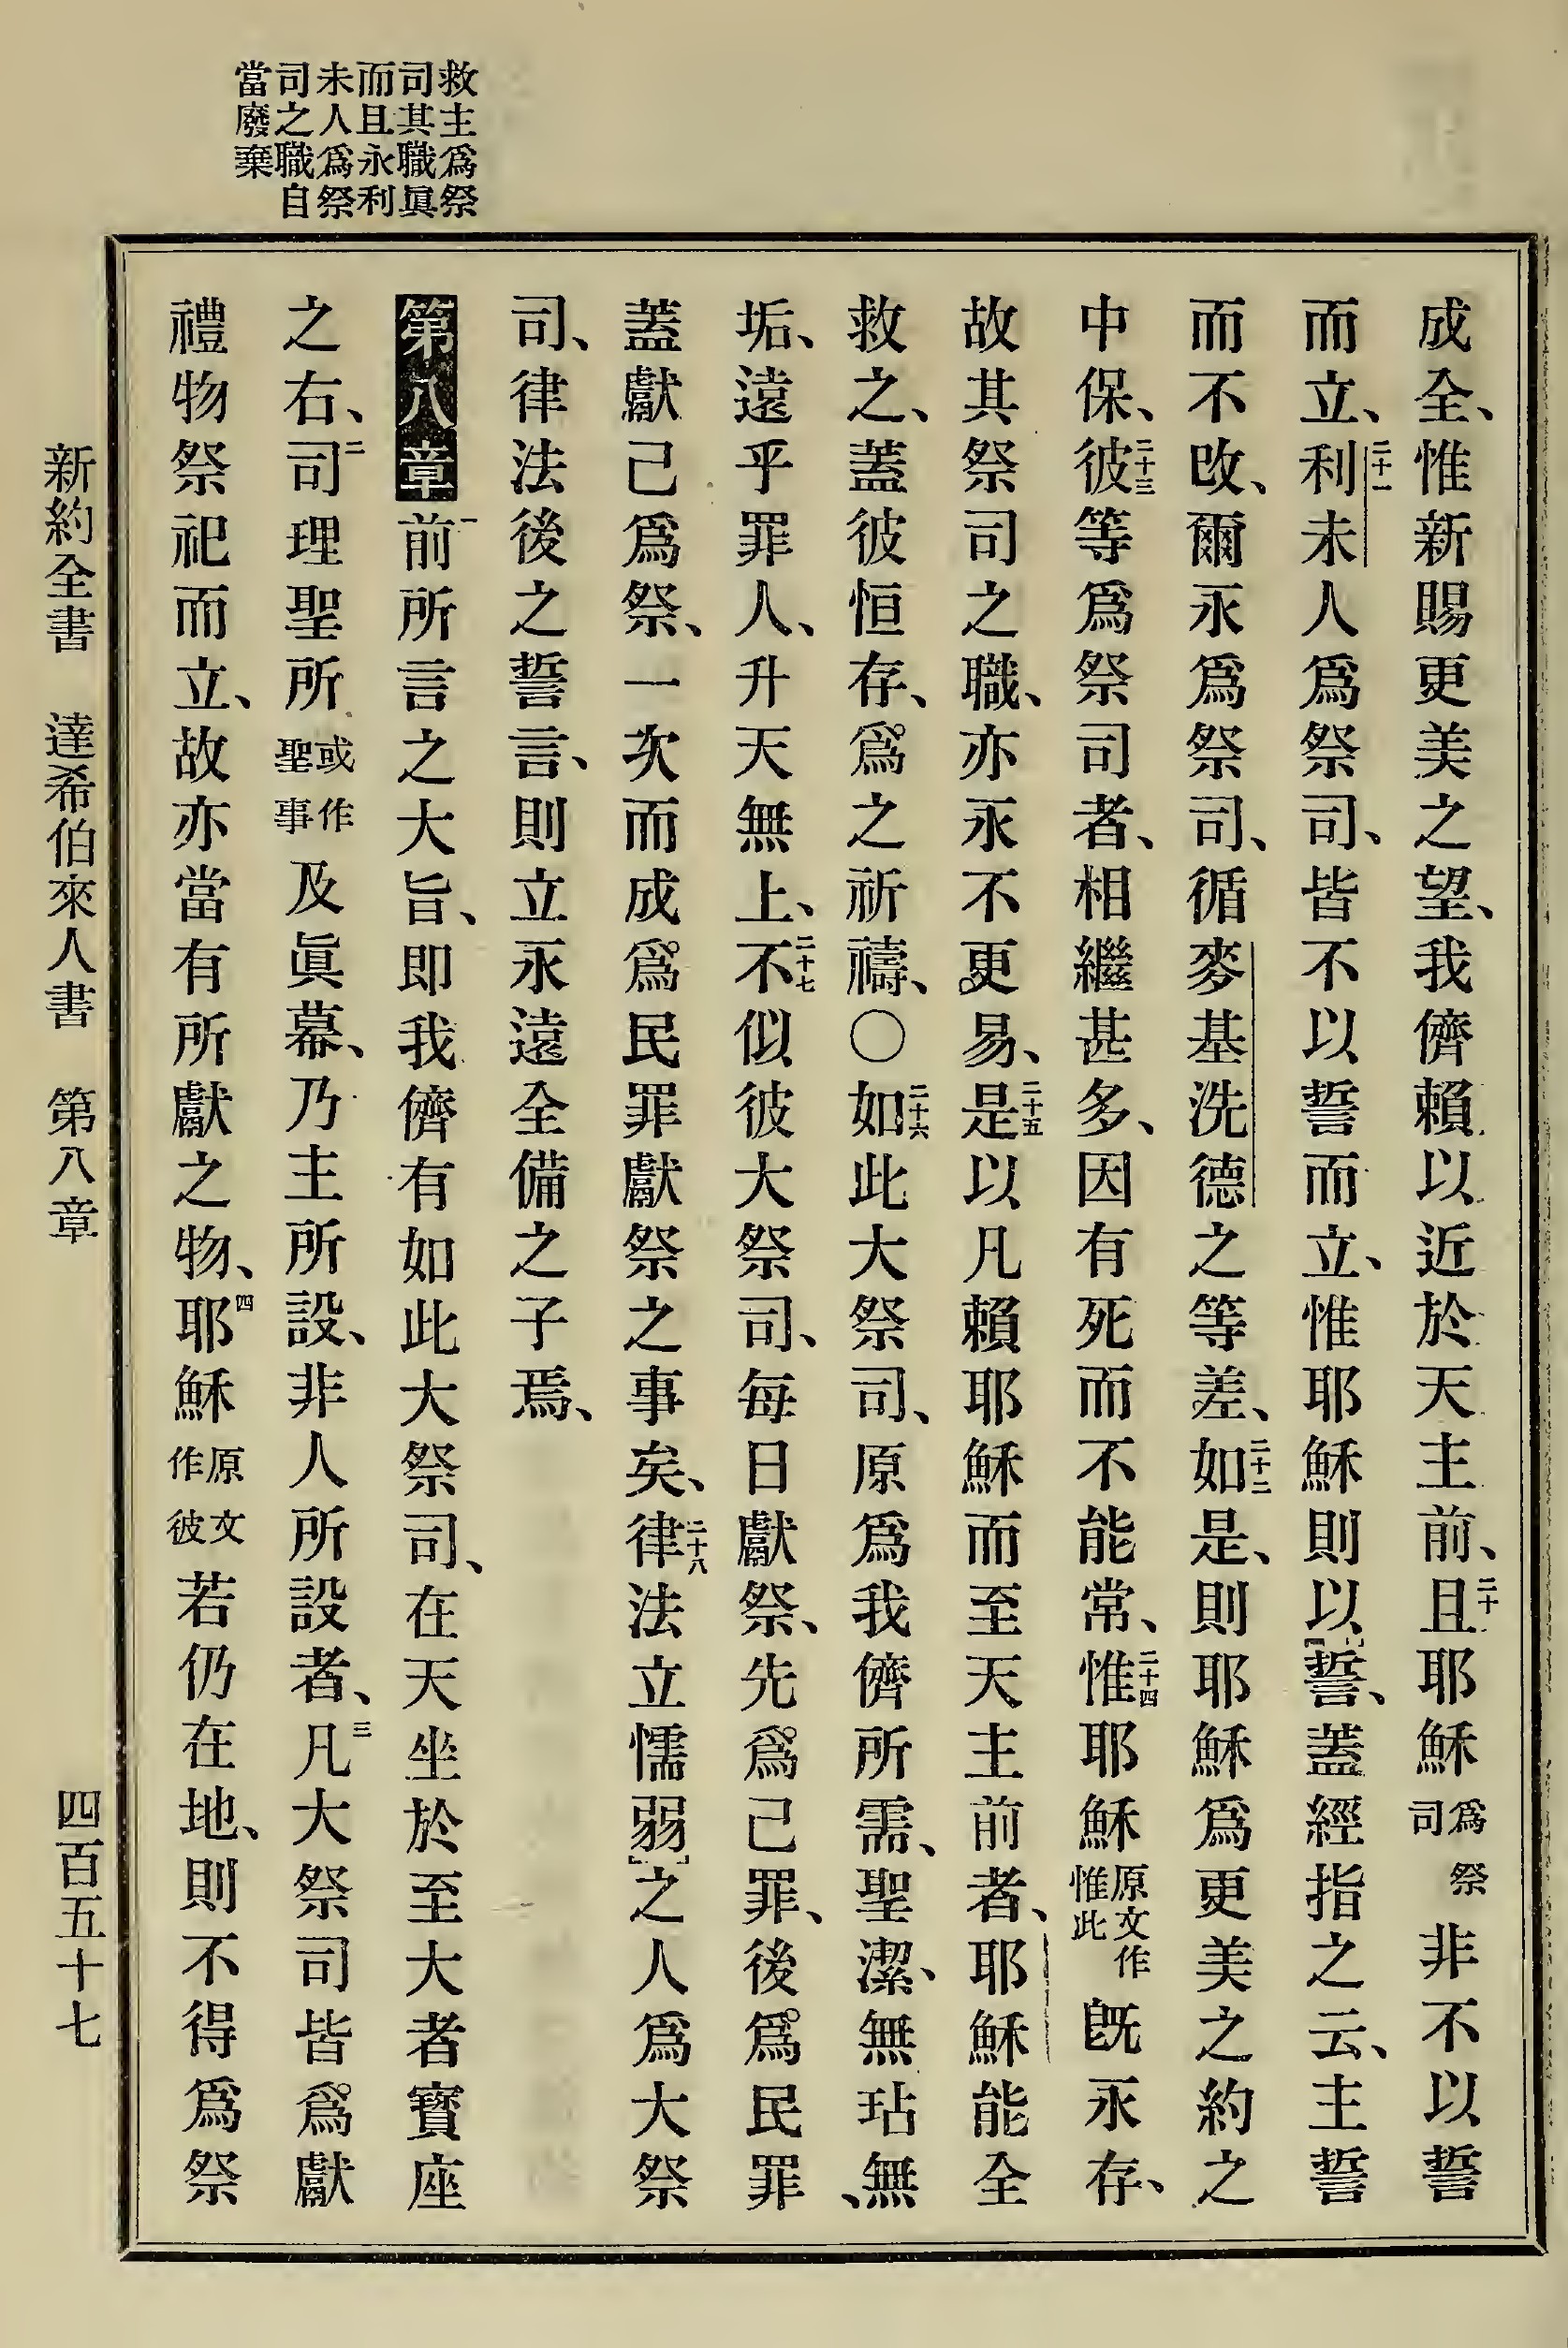 救主爲祭
司其職眞
而且永利
未人爲祭
司之職自
當廢棄
成全、惟新賜更美之望、我儕賴以近於天主前、二十且耶穌爲祭司非不以誓
而立、二十一利未人爲祭司、皆不以誓而立、惟耶穌則以誓、蓋經指之云、主誓
而不改、爾永爲祭司、循麥基洗德之等差、二十二如是、則耶穌爲更美之約之
中保、二十三彼等爲祭司者、相繼甚多、因有死而不能常、二十四惟耶穌原文作惟此旣永存、
故其祭司之職、亦永不更易、二十五是以凡賴耶穌而至天主前者、耶穌能全
救之、蓋彼恒存、爲之祈禱、〇二十六如此大祭司、原爲我儕所需、聖潔、無玷、無
垢、遠乎罪人、升天無上、二十七不似彼大祭司、每日獻祭、先爲己罪、後爲民罪
蓋獻己爲祭、一次而成爲民罪獻祭之事矣、二十八律法立懦弱之人爲大祭
司、律法後之誓言、則立永遠全備之子焉、
第八章一前所言之大旨、即我儕有如此大祭司、在天坐於至大者寶座
之右、二司理聖所或作聖事及眞幕、乃主所設、非人所設者、三凡大祭司皆爲獻
禮物祭祀而立、故亦當有所獻之物、四耶穌原文作彼若仍在地、則不得爲祭
新約全書 達希伯來人書 第八章 四百五十七